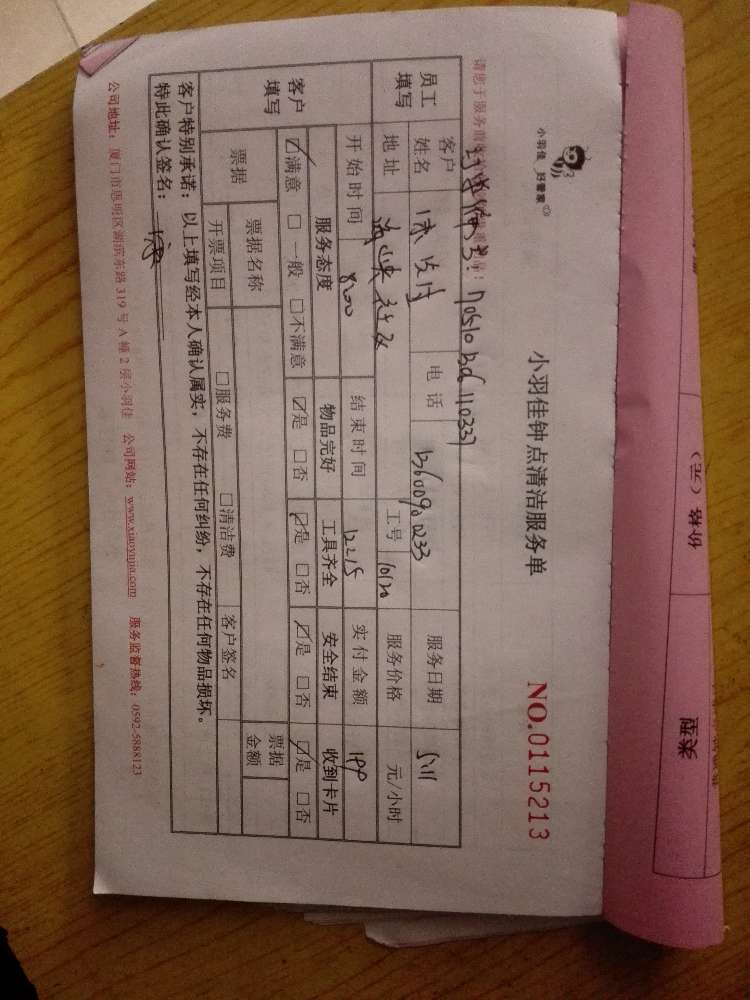 小羽佳 好管家
小羽佳钟点清洁服务单
NO.0115213
员工填写
客户姓名
电话 13600920233
服务日期 5.11
地址
工号 10120
服务价格 元/小时
开始时间 8:00
结束时间 12:15
实付金额 199
客户填写
服务态度 物品完好 工具齐全 安全结束 收到卡片
☑满意 □一般 □不满意 ☑是 □否 ☑是 □否 ☑是 □否 ☑是 □否
票据 票据名称 票据金额
开票项目 □服务费 □清洁费 客户签名
客户特别承诺:以上填写经本人确认属实,不存在任何纠纷,不存在任何物品损坏。
特此确认签名:
公司地址:厦门市思明区湖滨东路319号A幢2层小羽佳 公司网站:www.xiaoyujia.com 服务监督热线:0592-5888123
价格(元)